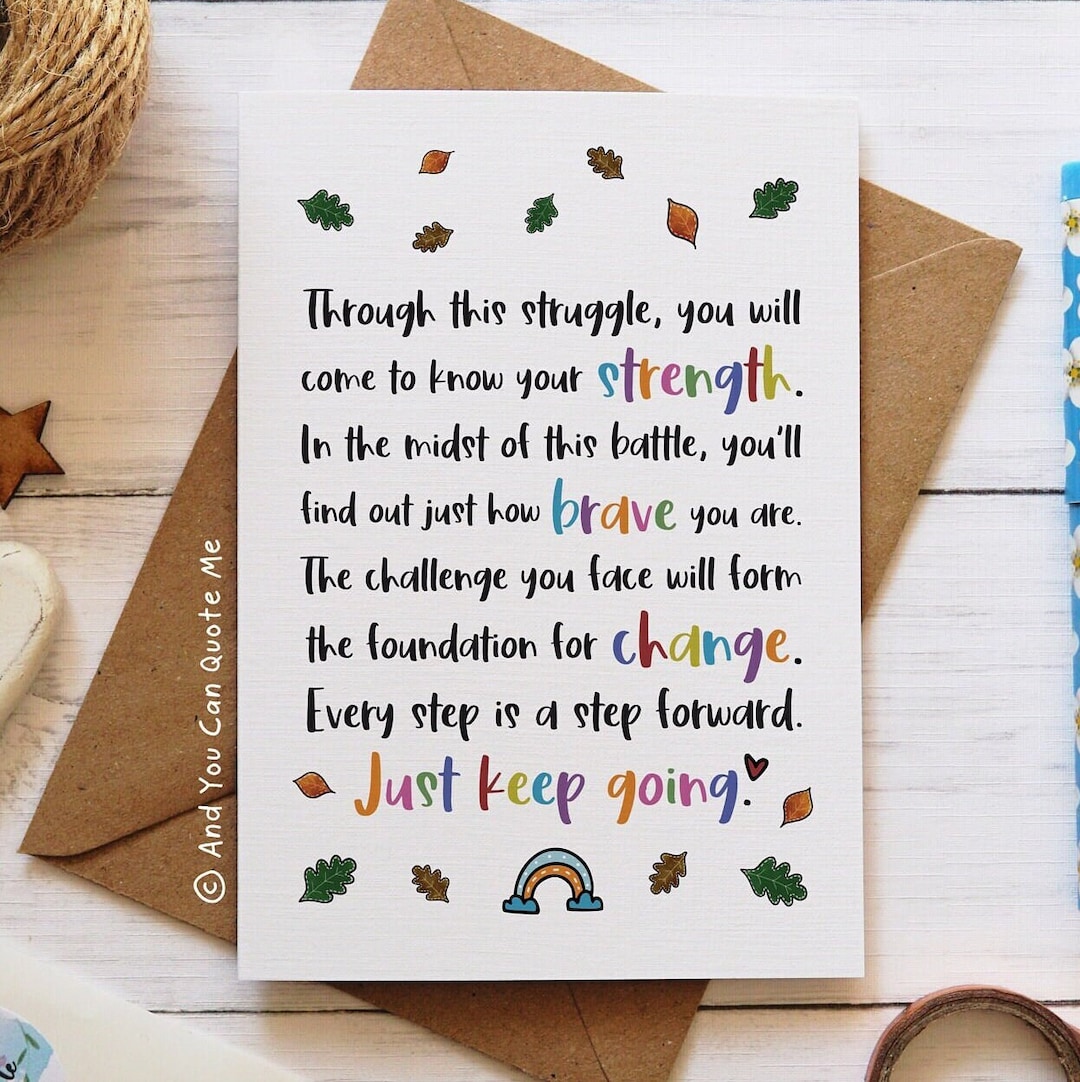 Through this struggle, you will
come to know your strength.
In the midst of this battle, you'll
find out just how brave you are.
The challenge you face will form
the foundation for change.
Every step is a step forward.
Just keep going.
© And You Can Quote Me